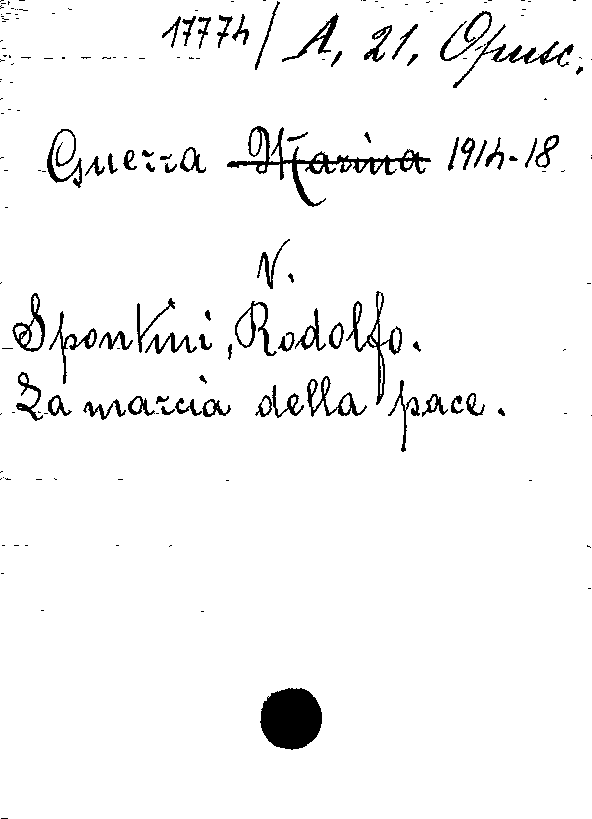 17774/ A, 21, Opusc.
Guerra Marina 1914-18
V.
Spontini, Rodolfo.
La marcia della pace.